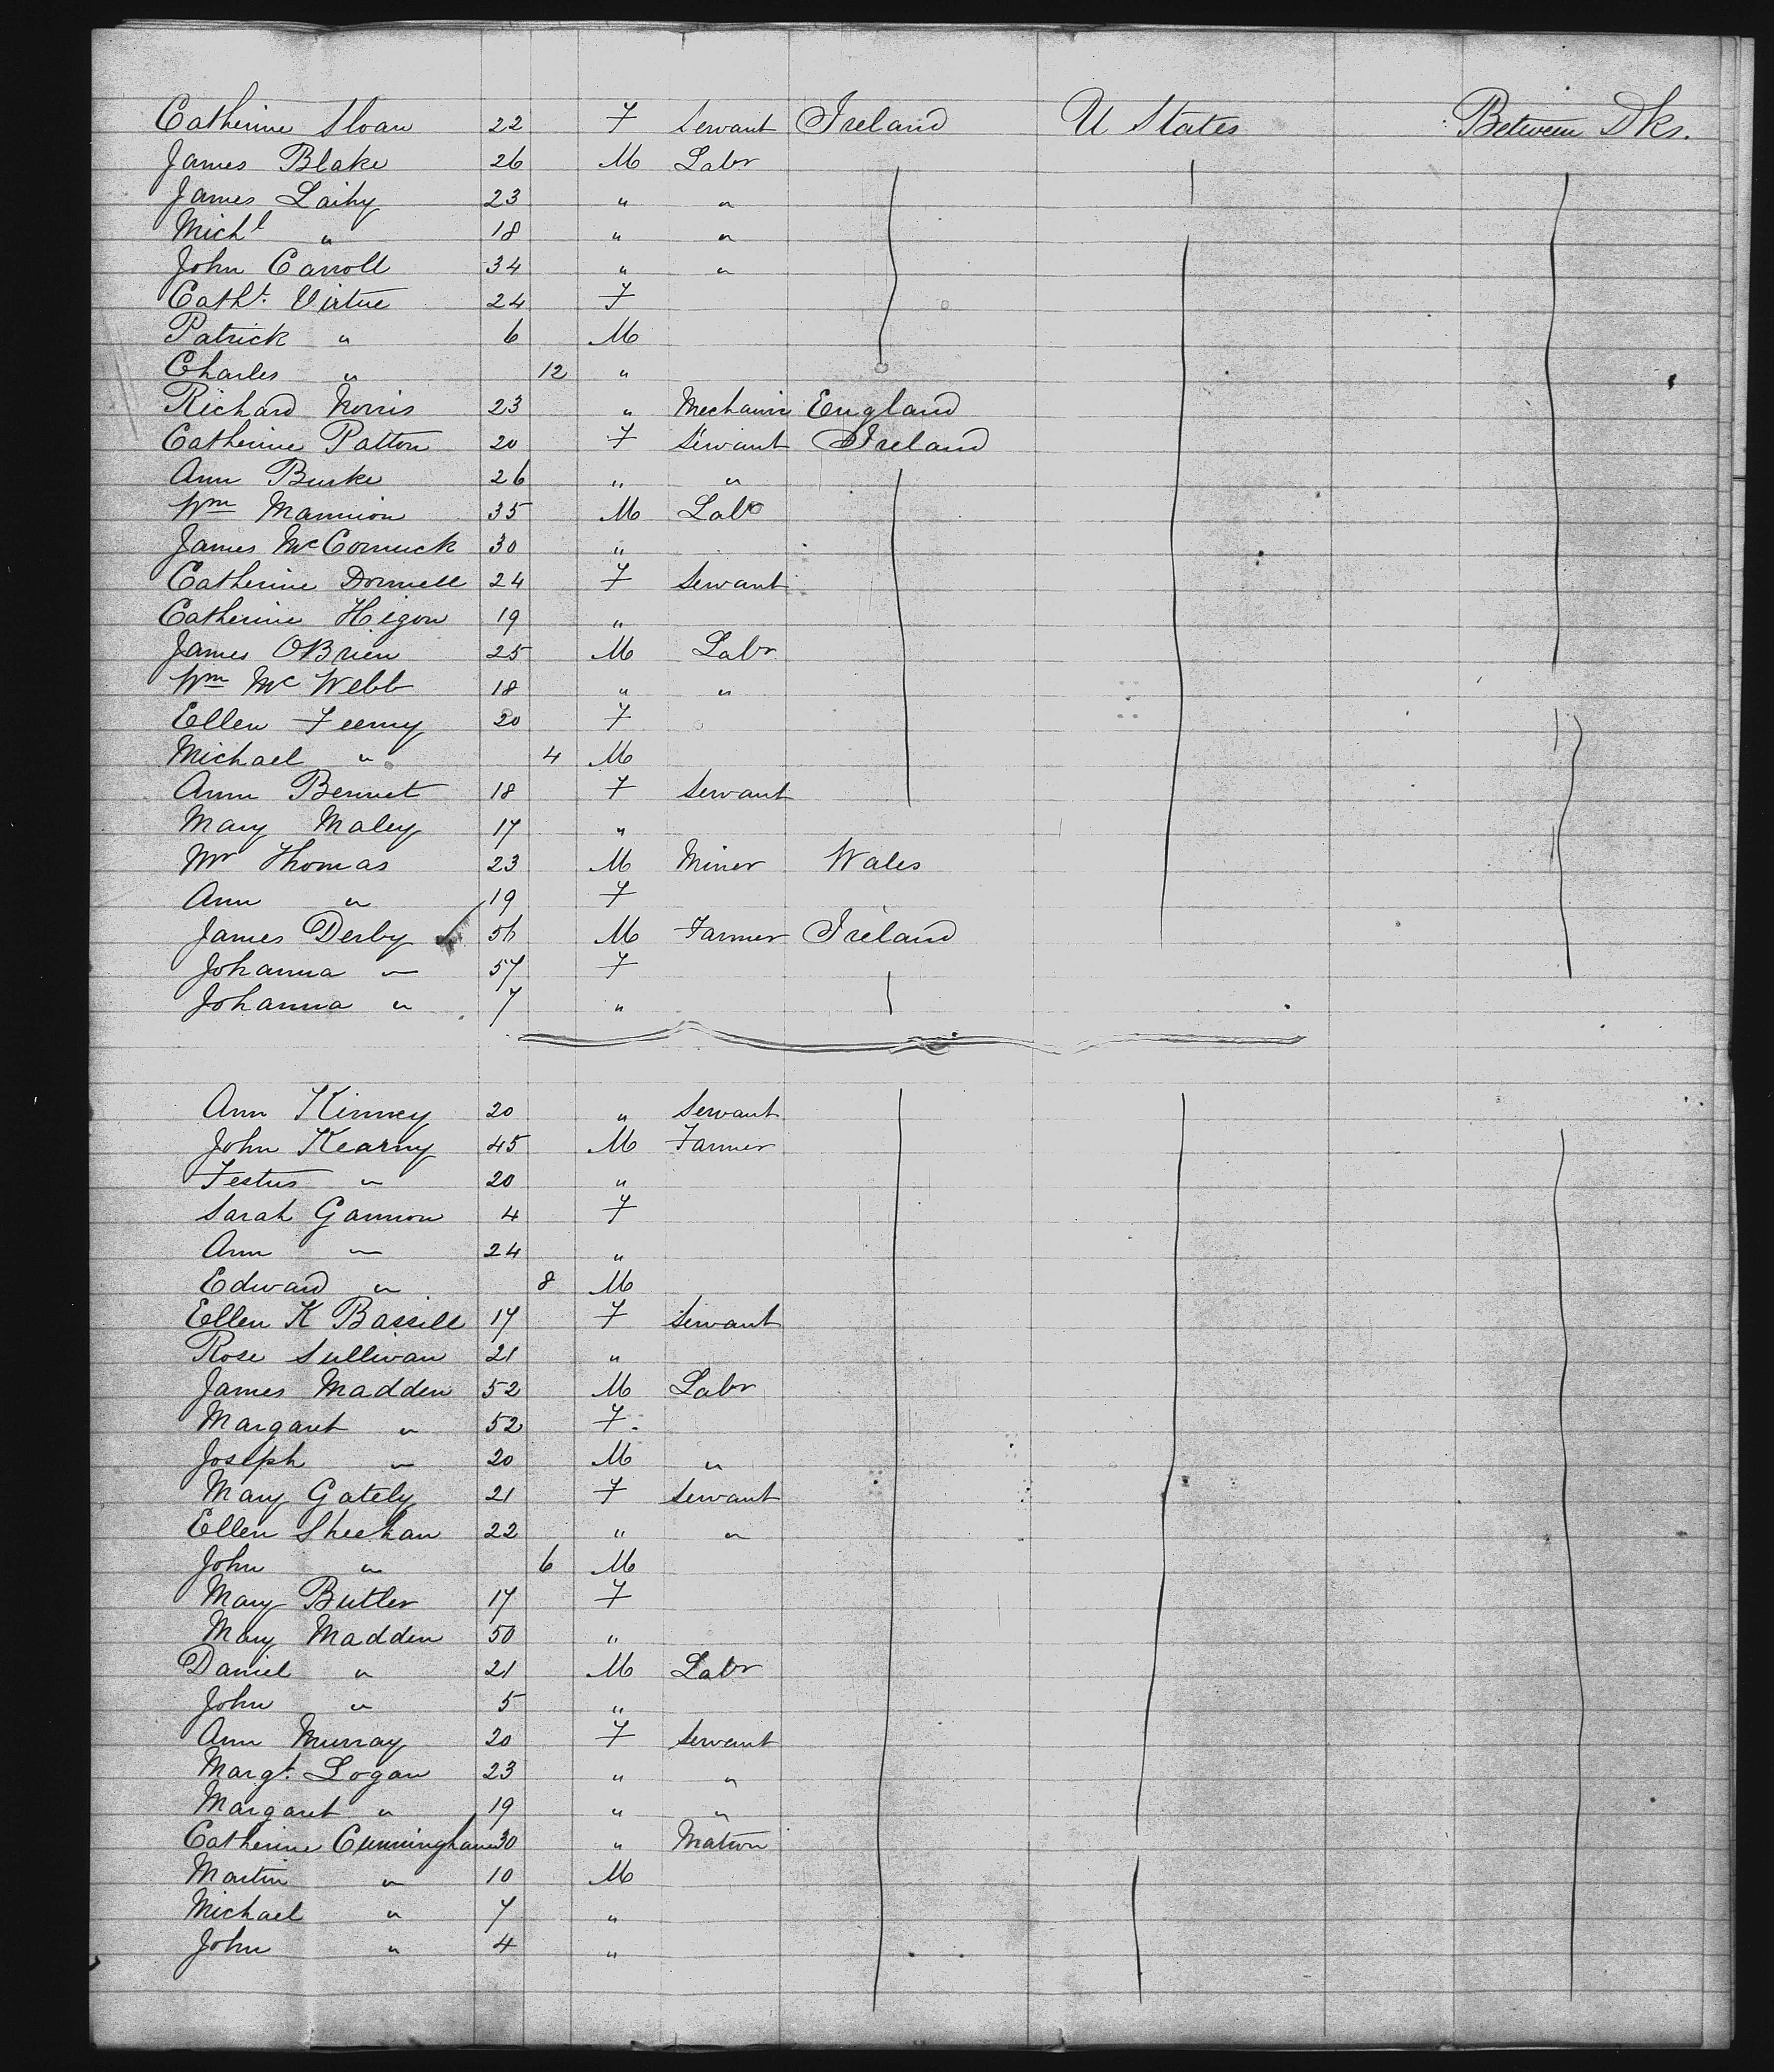 Catherine Sloan 22 F Servant Ireland U States Between Dks.
James Blake 26 M Labr
James Laihy 23 " "
Michl " 18 " "
John Carroll 34 " "
Catht. Virtue 24 F
Patrick " 6 M
Charles " 12 "
Richard Norris 23 " Mechanic England
Catherine Patton 20 F Servant Ireland
Ann Burke 26 " "
Wm Mannion 35 M Labr
James McCormick 30 "
Catherine Donnell 24 F Servant
Catherine Higon 19 "
James OBrien 25 M Labr
Wm Mc Webb 18 " "
Ellen Feeny 20 F
Michael " 4 M
Ann Bennet 18 F Servant
Mary Maley 17 "
Wm Thomas 23 M Miner Wales
Ann " 19 F
James Derby 56 M Farmer Ireland
Johanna " 57 F
Johanna " 7 "
Ann Kinney 20 " Servant
John Kearny 45 M Farmer
Festus " 20 "
Sarah Gannon 4 F
Ann " 24 "
Edward " 8 M
Ellen K Bassill 17 F Servant
Rose Sullivan 21 "
James Madden 52 M Labr
Margaret " 52 F
Joseph " 20 M "
Mary Gately 21 F Servant
Ellen Sheehan 22 " "
John " 6 M
Mary Butler 17 F
Mary Madden 50 "
Daniel " 21 M Labr
John " 5 "
Ann Murray 20 F Servant
Margt. Logan 23 " "
Margaret " 19 " "
Catherine Cunningham 30 " Matron
Martin " 10 M
Michael " 7 "
John " 4 "